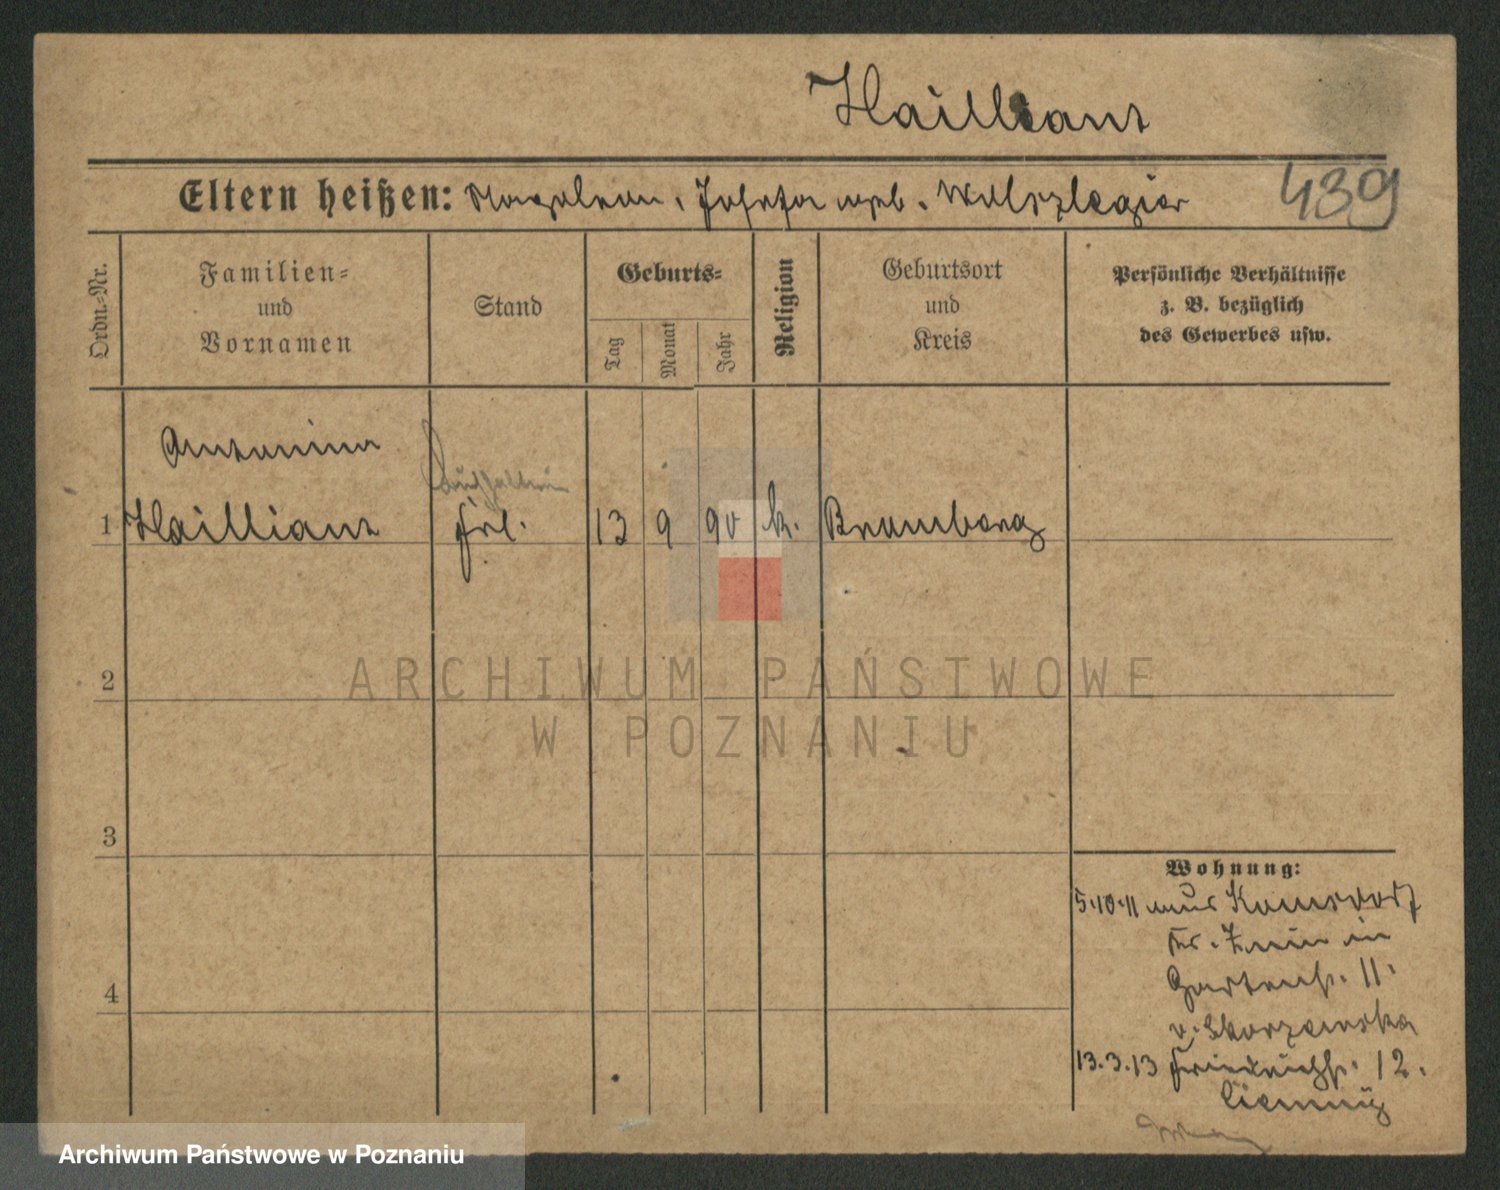 Hailliant
Eltern heißen: Napoleon, Josefa geb. Welszlegier
439
Ordn.-Nr.
Familien-
und
Vornamen
Stand
Geburts-
Tag
Monat
Jahr
Religion
Geburtsort
und
Kreis
Persönliche Verhältnisse
z. B. bezüglich
des Gewerbes usw.
Antonina
Buchhalterin
1 Hailliant Frl. 13 9 90 k. Bromberg
2
3
4
Wohnung:
5.10.11 aus
Kr. Znin in
Gartenstr. 11.
v. Skorzewska
13.3.13 Friedrichstr. 12.
ARCHIWUM PAŃSTWOWE
W POZNANIU
Archiwum Państwowe w Poznaniu